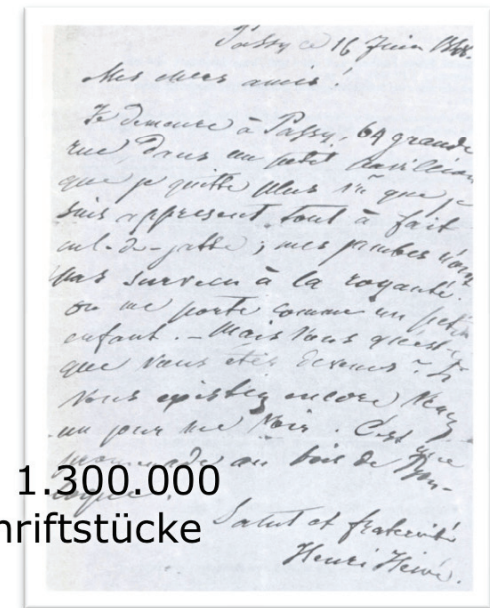 Passy ce 16 Juin 1848.
Mes chers amis!
Je demeure à Passy, 64 grande
rue, dans un petit pavillon
que je quitte plus vu que je
suis appresent tout à fait
cul-de-jatte; mes jambes n'ont
pas survecu à la royauté.
on me porte comme un petit
enfant. — Mais vous qu'est-ce
que vous etes devenus? Si
vous existez encore venez
un jour me voir. C'est une
promenade au bois de
1.300.000
hriftstücke
Salut et fraternité
Henri Heine.